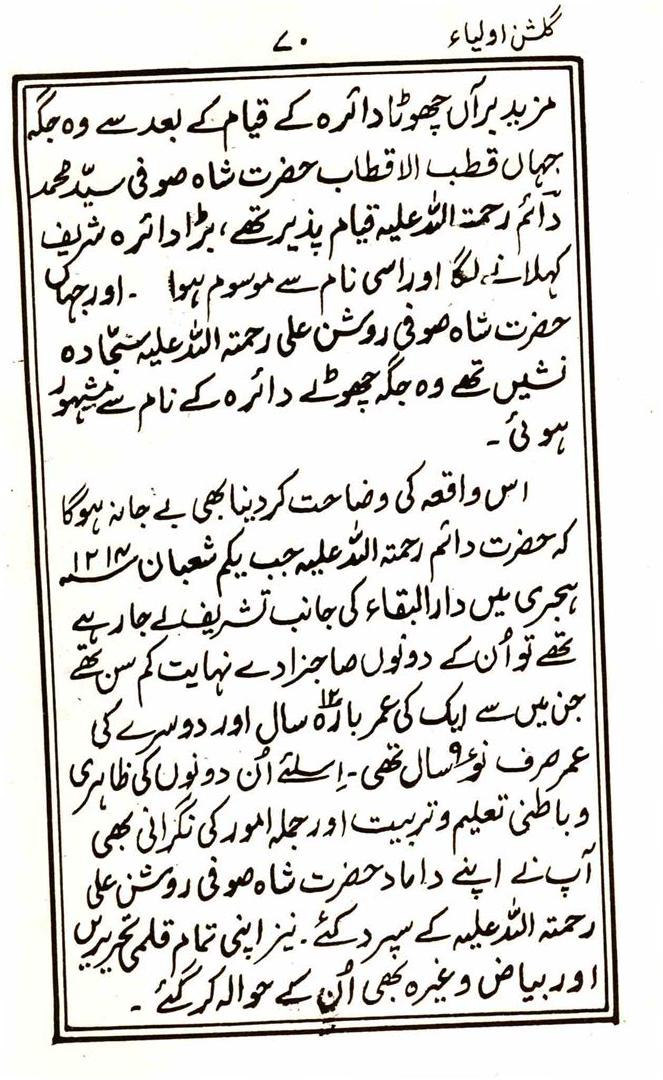 گلشن اولیاء
۷۰
مزید برآں چھوٹا دائرہ کے قیام کے بعد سے وہ جگہ
جہاں قطب الاقطاب حضرت شاہ صوفی سیّد محمد
دائم رحمتہ اللہ علیہ قیام پذیر تھے، بڑا دائرہ شریف
کہلانے لگا اور اسی نام سے موسوم ہوا ۔ اور جہاں
حضرت شاہ صوفی روشن علی رحمتہ اللہ علیہ سجّادہ
نشیں تھے وہ جگہ چھوٹے دائرہ کے نام سے مشہور
ہوئی ۔
اس واقعہ کی وضاحت کر دینا بھی بے جا نہ ہوگا
کہ حضرت دائم رحمتہ اللہ علیہ جب یکم شعبان ۱۲۱۴؁
ہجری میں دارالبقاء کی جانب تشریف لے جا رہے
تھے تو اُن کے دونوں صاحبزادے نہایت کم سن تھے
جن میں سے ایک کی عمر بارہ ۱۲ سال اور دوسرے کی
عمر صرف نو ۹ سال تھی ۔ اِسلئے اُن دونوں کی ظاہری
و باطنی تعلیم و تربیت اور جملہ امور کی نگرانی بھی
آپ نے اپنے داماد حضرت شاہ صوفی روشن علی
رحمتہ اللہ علیہ کے سپرد کئے ۔ نیز اپنی تمام قلمی تحریریں
اور بیاض وغیرہ بھی اُن کے حوالہ کر گئے ۔